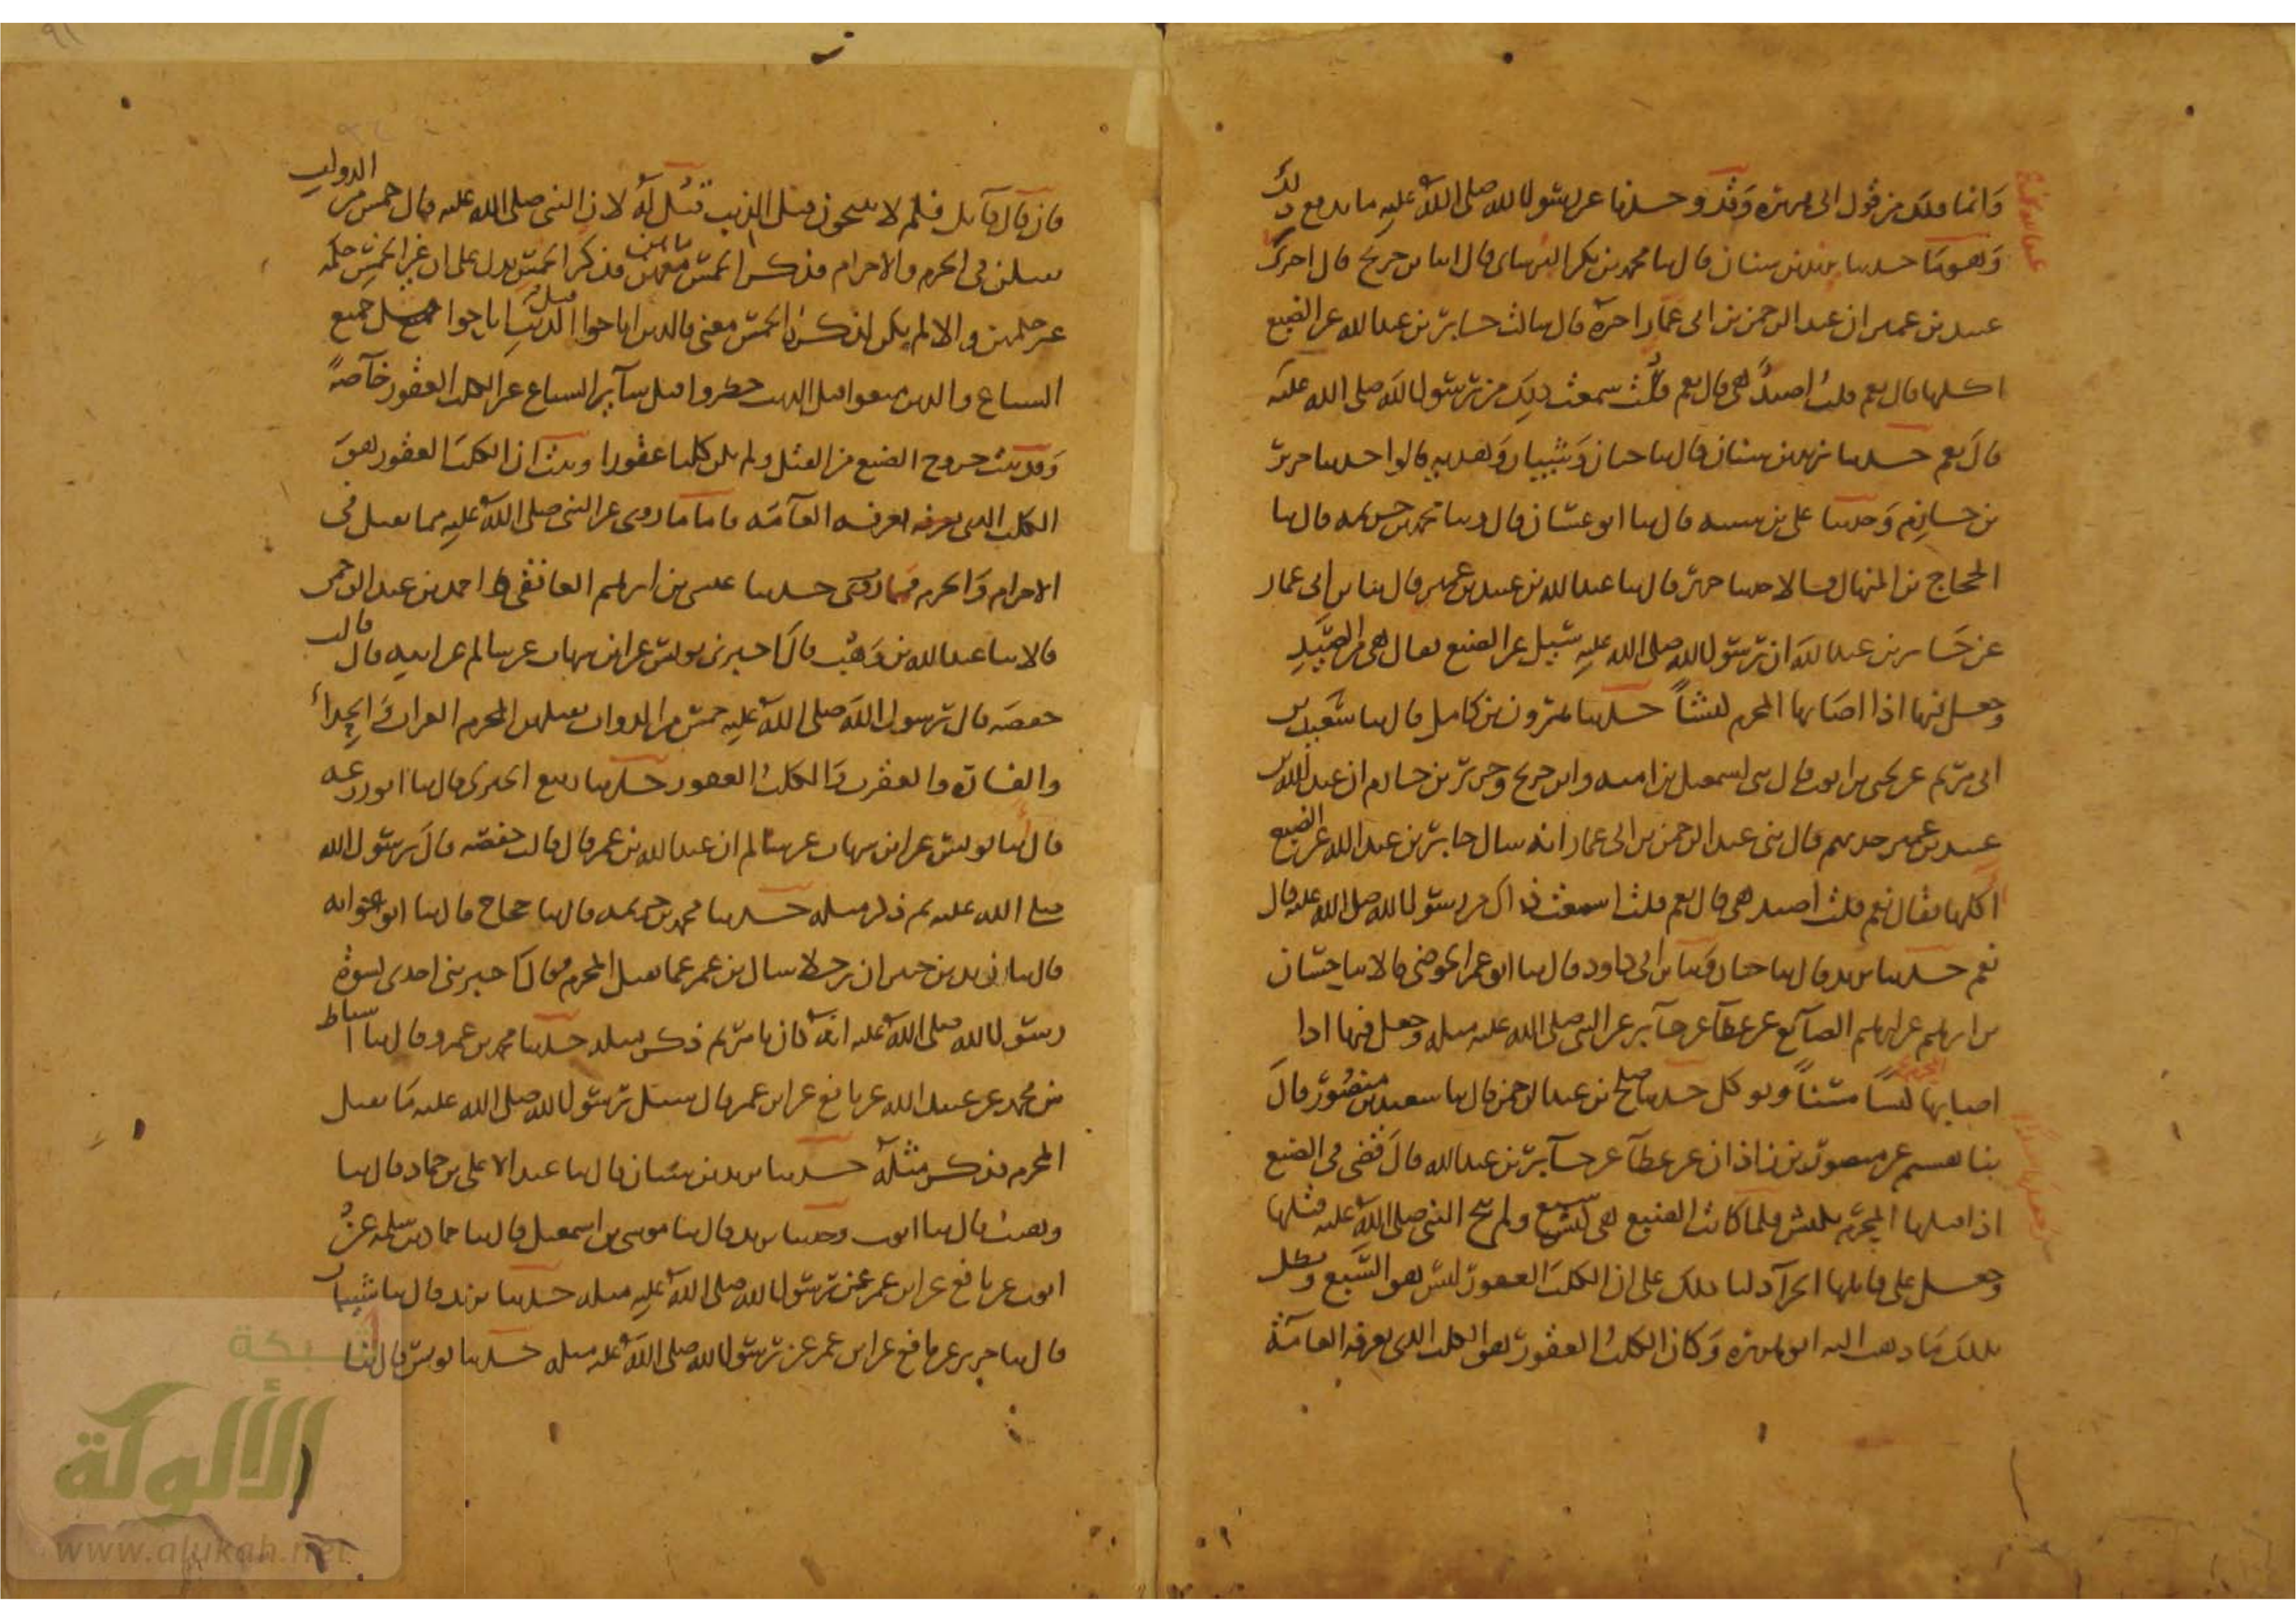 وانما ملك من قول ابى هريرة وقد وحدنا عن رسول الله صلى الله عليه ما يدفع ذلك
وهو ما حدثنا يزيد بن سنان قال ثنا محمد بن بكر البرسانى قال انا ابن جريج قال اخبرنى
عبيد بن عمير ان عبد الرحمن بن ابى عمار اخبره قال سالت جابر بن عبد الله عن الضبع
اكلها قال نعم قلت اصيد هى قال نعم قلت سمعت ذلك من رسول الله صلى الله عليه
قال نعم حدثنا يزيد بن سنان قال ثنا حبان وشيبان وهدبة قالوا حدثنا جرير
بن حازم وحدثنا على بن شيبة قال ثنا ابو غسان قال وثنا محمد بن خزيمة قال ثنا
الحجاج بن المنهال قالا حدثنا جرير قال ثنا عبد الله بن عبيد بن عمير قال ثنا بن ابى عمار
عن جابر بن عبد الله ان رسول الله صلى الله عليه سئل عن الضبع فقال هى من الصيد
وجعل فيها اذا اصابها المحرم كبشا حدثنا هرون بن كامل قال ثنا سعيد بن
ابى مريم عن يحيى بن ايوب قال ثنى اسمعيل بن امية وابن جريج وجرير بن حازم ان عبد الله بن
عبيد بن عمير حدثهم قال ثنى عبد الرحمن بن ابى عمار انه سال جابر بن عبد الله عن الضبع
اكلها فقال نعم قلت اصيد هى قال نعم قلت اسمعت ذاك من رسول الله صلى الله عليه قال
نعم حدثنا يزيد قال ثنا حبان وثنا بن ابى داود قال ثنا ابو عمر الحوضى قالا ثنا حسان
بن ابرهيم عن ابرهيم الصائغ عن عطا عن جابر عن النبى صلى الله عليه مثله وجعل فيها اذا
اصابها المحرم كبشا مسنا وتوكل حدثنا صلح بن عبد الرحمن قال ثنا سعيد بن منصور قال
ثنا هشيم عن منصور بن زاذان عن عطا عن جابر بن عبد الله قال قضى فى الضبع
اذا قتلها المحرم بكبش فلما كانت الضبع هى سبع ولم يبح النبى صلى الله عليه قتلها
وجعل على قاتلها الجزا دلنا ذلك على ان الكلب العقور ليس هو السبع وبطل
بذلك ما ذهب اليه ابو هريرة وكان الكلب العقور هو الكلب الذى يعرفه العامة
فان قال قائل فلم لا تبيحون قتل الذيب قيل له لان النبى صلى الله عليه قال خمس من الدواب
يقتلن فى الحرم والاحرام فذكر الخمس ما هن فذكر الخمس يدل على ان غير الخمس حكمه
غير حكمهن والا لم يكن لذكر الخمس معنى فالذين اباحوا قتل الذيب اباحوا قتل جميع
السباع والذين منعوا قتل الذيب حظروا قتل سائر السباع غير الكلب العقور خاصة
وقد ثبت خروج الضبع من القتل ولم يكن كلبا عقورا وثبت ان الكلب العقور هو
الكلب الذى تعرفه العامة فاما ما روى عن النبى صلى الله عليه مما يقتل فى
الاحرام والحرم فما حدثنا عيسى بن ابرهيم الغافقى واحمد بن عبد الرحمن
قالا ثنا عبد الله بن وهب قال اخبرنى يونس عن ابن شهاب عن سالم عن ابيه قال قالت
حفصة قال رسول الله صلى الله عليه خمس من الدواب يقتلهن المحرم الغراب والحدا
والفارة والعقرب والكلب العقور حدثنا ربيع الجيزى قال ثنا ابو زرعة
قال انا يونس عن ابن شهاب عن سالم ان عبد الله بن عمر قال قالت حفصة قال رسول الله
صلى الله عليه ثم ذكر مثله حدثنا محمد بن خزيمة قال ثنا حجاج قال ثنا ابو عوانه
قال ثنا زيد بن جبير ان رجلا سال بن عمر عما يقتل المحرم فقال اخبرتنى احدى نسوة
رسول الله صلى الله عليه انه كان يامر ثم ذكر مثله حدثنا محمد بن عمرو قال ثنا اسباط
بن محمد عن عبيد الله عن نافع عن ابن عمر قال سئل رسول الله صلى الله عليه ما يقتل
المحرم فذكر مثله حدثنا يزيد بن سنان قال ثنا عبد الاعلى بن حماد قال ثنا
وهيب قال ثنا ايوب وحدثنا يزيد قال ثنا موسى بن اسمعيل قال ثنا حماد بن سلمة عن
ايوب عن نافع عن ابن عمر عن رسول الله صلى الله عليه مثله حدثنا يزيد قال ثنا شيبان
قال ثنا جرير عن نافع عن ابن عمر عن رسول الله صلى الله عليه مثله حدثنا يونس قال انا
شبكة
الألوكة
www.alukah.net